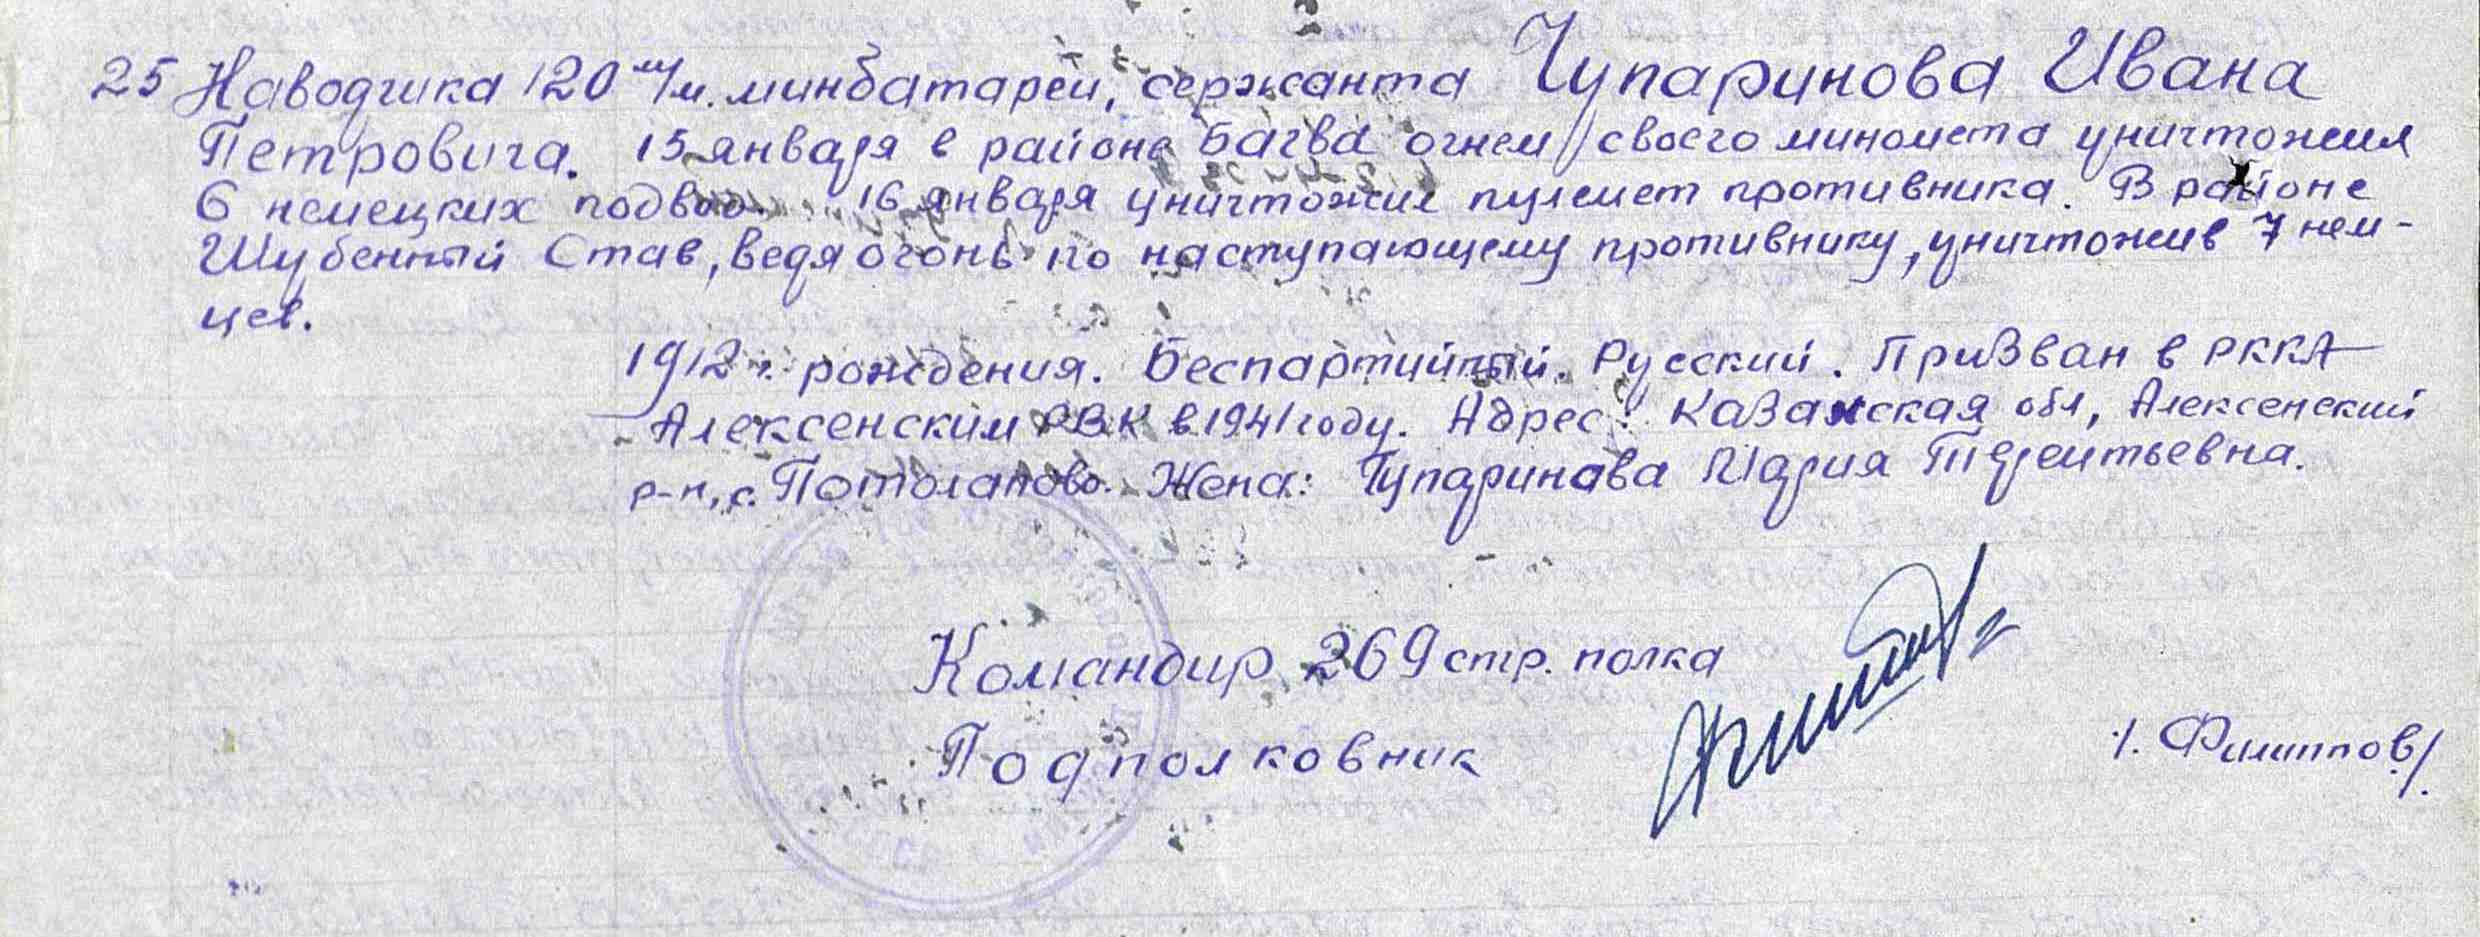 25 Наводчика 120 м/м. минбатареи, сержанта Чупаринова Ивана
Петровича. 15 января в районе Багва огнем своего миномета уничтожил
6 немецких подвод. 16 января уничтожил пулемет противника. В районе
Шубенный Став, ведя огонь по наступающему противнику, уничтожив 7 нем-
цев.
1912 г. рождения. Беспартийный. Русский. Призван в РККА
Алексенским РВК в 1941 году. Адрес: Казанская обл, Алексенский
р-н, с. Потолапово. Жена: Чупаринова Мария Терентьевна.
Командир 269 стр. полка
Подполковник
/. Филиппов/.